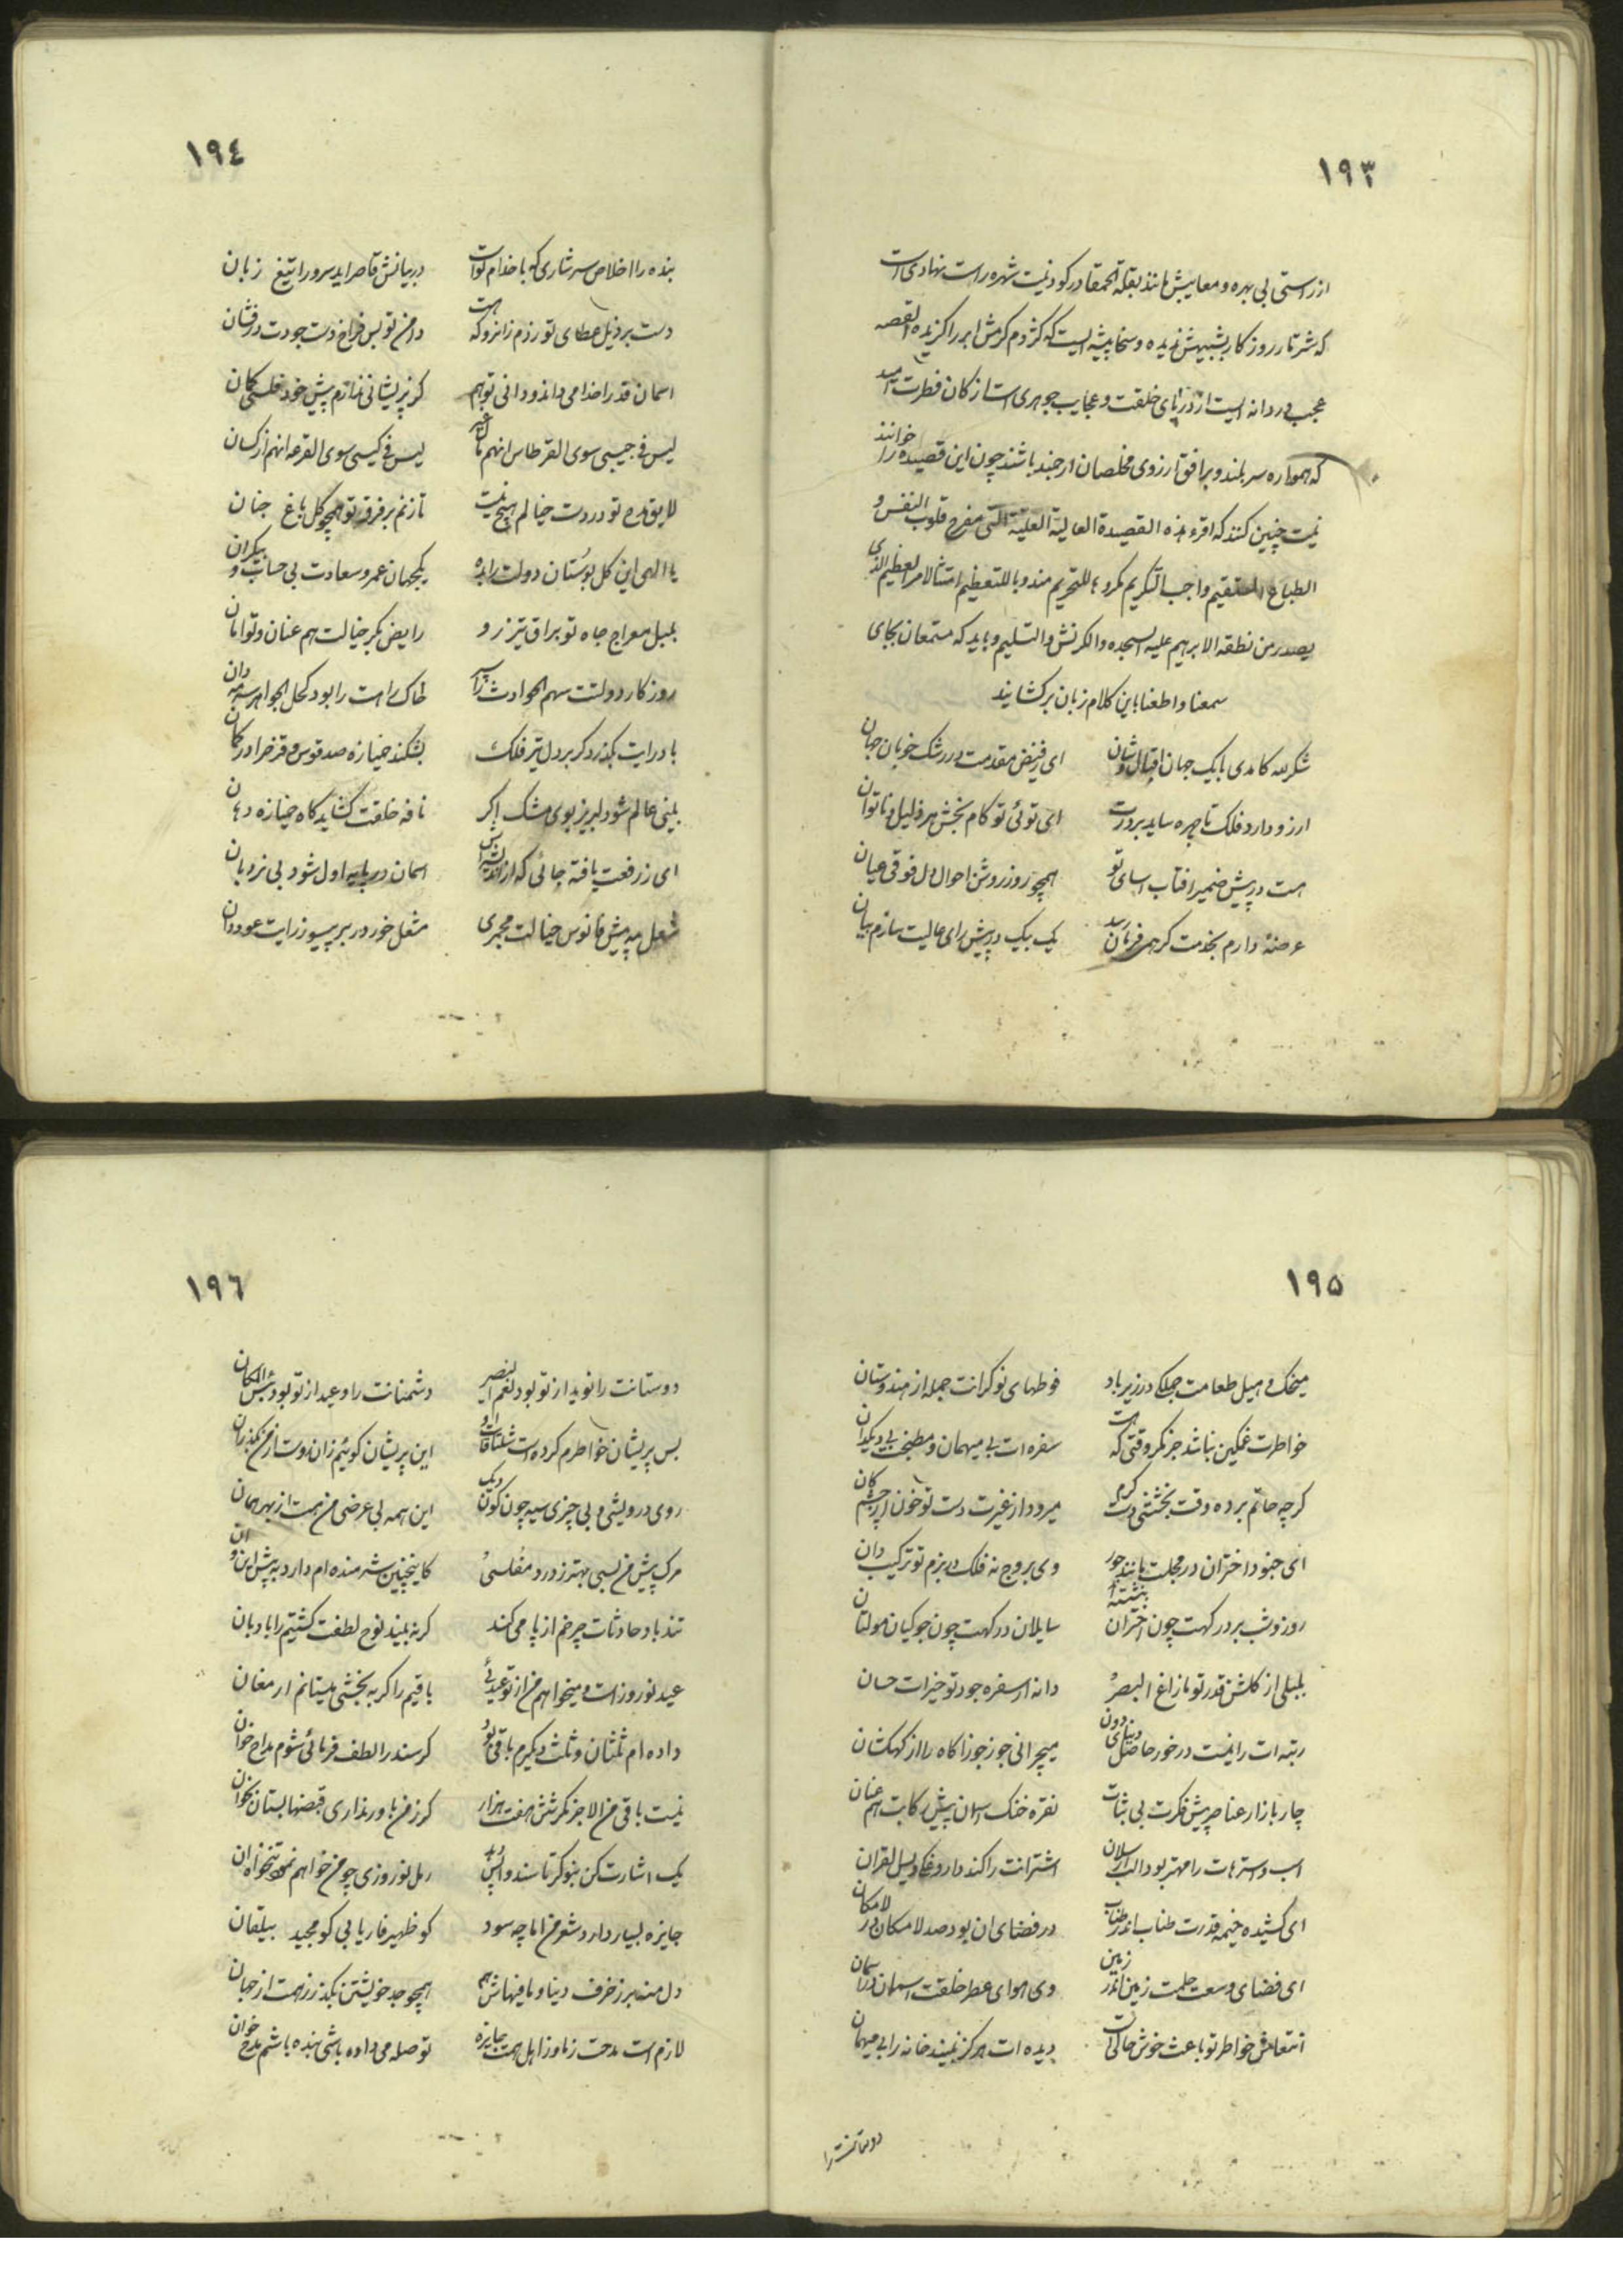 ١٩٣
از راستی بی بهره و معایبش مانند بقلة الحمقا در کودنیت شهره راست نهادی است
که شرتا روزکار بشبیهش ندیده و سخا پیشه ایست که کژدم کرمش ابر را کزیده القصه
عجب دردانه ایست از دریای خلقت و عجایب جوهری است از کان فطرت امید
که همواره سربلند و برافق آرزوی مخلصان ارجمند باشند چون این قصیده را خوانند
نیت چنین کنند که اقرء هذه القصیدة العالیة العلیة التی مفرح قلوب النفس و
الطباع المستقیم واجب التکریم مکروها للتحریم مندوبا للتعظیم امتثالا لامر العظیم الذی
یصدر من نطقه الابرهیم علیه السجده والکرنش والتسلیم و باید که مستمعان بجای
سمعنا و اطعنا باین کلام زبان برکشایند
شکرلله کامدی با یک جهان اقبال و شان ای ز فیض مقدمت در رشک خوبان جهان
ارزو دارد فلک تا چهره ساید بر درت ای توئی تو کام بخش هر ذلیل و ناتوان
هست در پیش ضمیر افتاب اسای تو همچو روز روشن احوال دل فوقی عیان
عرضهٔ دارم بخدمت کر همی فرمان رسد یک بیک در پیش رای عالیت سازم بیان
١٩٤
بنده را اخلاص سرشاری که با خدام تو است در بیانش قاصر اید سرور ا تیغ زبان
دست بر ذیل عطای تو زدم زانرو که هست دامن تو بس فراخ و دست جودت درفشان
اسمان قدرا خدا می داند و دانی تو هم کز پریشانی ندارم پیش خود فلسی کمان
لیس فی جیبی سوی القرطاس انهم لیس فی کیسی سوی القرعه انهم از کسان
لایق مدح تو در دست خیالم هیچ نیست تا زنم بر فرق تو همچو کل باغ جنان
یا الهی این کل بوستان دولت را بده یکجهان عمر و سعادت بی حساب و بیکران
بلبل معراج جاه تو براق تیزرو رایض بکر خیالت هم عنان و توامان
روزکار دولتت سهم الحوادث را سپر خاک راهت را بود کحل الجواهر سرمه دان
باد رایت بکذرد کر بر دل تیر فلک بشکند خمیازه صد قوس و قزح را در کمان
بینی عالم شود لبریز بوی مشک اکر نافه خلقت کشاید کاه خمیازه دهان
ای ز رفعت یافته جائی که از اندیشه اش اسمان در پایه اول شود بی نردبان
شعل مه پیش فانوس خیالت مجمری مشعل خور در بر پیسوز رایت عود دان
١٩٥
میخک و هیل طعامت جملکی در زیرباد فوطهای نوکرانت جمله از هندوستان
خواطرت غمکین نباشد جز مکر وقتی که هست سفره ات بی میهمان و مطبخت بی دیکدان
کرچه حاتم برده وقت بخشش دست کرم میرود از غیرت دست تو خون از چشم کان
ای جنود اختران در مجلست مانند حور وی بروج نه فلک در بزم تو ترکیب دان
روز و شب بر درکهت چون اختران بنشسته اند سایلان درکهت چون جوکیان مولتان
بلبلی از کلشن قدر تو مازاغ البصر دانه از سفره جود تو خیرات حسان
رتبه ات را نیست در خور حاصل دنیای دون میچرانی جوز جوزا کاه را از کهکشان
چار بازار عناصر پیش فکرت بی ثبات نقره خنک اسمان پیش رکابت هم عنان
اسب و استرهات را مهتر بود الب ارسلان اشترانت را کند داروغکی ویسل القران
ای کشیده خیمه قدرت طناب اندر طناب در فضای ان بود صد لامکان در لامکان
ای فضای وسعت حلمت زمین اندر زمین وی هوای عطر خلقت اسمان در اسمان
انتعاش خواطر تو باعث خوش حالی است دیده ات هرکز نبیند خانه را بی میهمان
دوستانت را
١٩٦
دوستانت را نوید از تو بود نعم النصیر دشمنانت را وعید از تو بود بئس المکان
بس پریشان خواطرم کرده است شلتاقات او این پریشان کوئیم زان روست از من بکذران
روی درویشی و بی چیزی سیه چون کون دیک این همه بی عرضی من هست از بهر همان
مرک پیش من بسی بهتر ز درد مفلسی کاینچنین شرمنده ام دارد به پیش این و ان
تند باد حادثات چرخم از پا می کند کر نه بیند نوح لطفت کشتیم را بادبان
عید نوروز است و میخواهم من از تو عیدئی باقیم را کر به بخشی میستانم ارمغان
داده ام ثلثان و ثلث دیکرم باقی بود کر سند را لطف فرمائی شوم مداح خوان
نیست باقی من الا جز مکر شش هفت هزار کر ز من باور نداری قبضها بستان بخوان
یک اشارت کن بنوکر تا سند واپس دهد رمل نوروزی چو من خواهم نمود تنخواه ان
جایزه بسیار دارد شعر من اما چه سود کو ظهیر فاریابی کو مجید بیلقان
دل منه بر زخرف دنیا و مافیهاش هم همچو جد خویشتن بکذر ز همت از جهان
لازم است مدحت ز ما و ز اهل همت جایزه تو صله می داده باشی بنده باشم مدح خوان